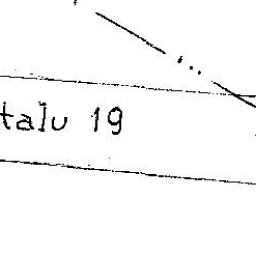 talu 19